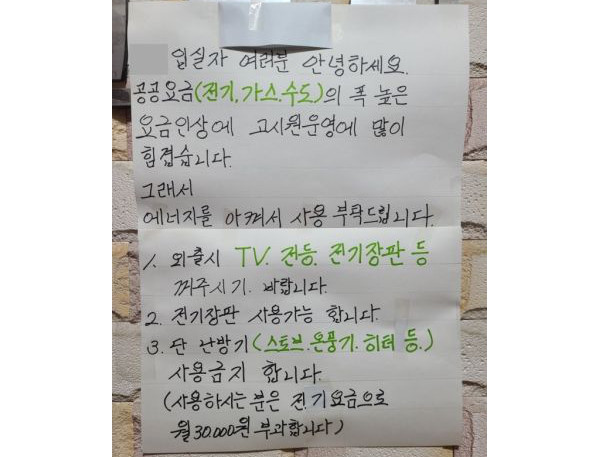 입실자 여러분 안녕하세요.
공공요금(전기.가스.수도)의 폭 높은
요금인상에 고시원운영에 많이
힘겹습니다.
그래서
에너지를 아켜서 사용 부탁드립니다.
1. 외출시 TV. 전등. 전기장판 등
꺼주시기. 바랍니다.
2. 전기장판 사용가능 합니다.
3. 단 난방기(스토브.온풍기.히터 등.)
사용금지 합니다.
(사용하시는 분은 전기요금으로
월30.000원 부과합니다)